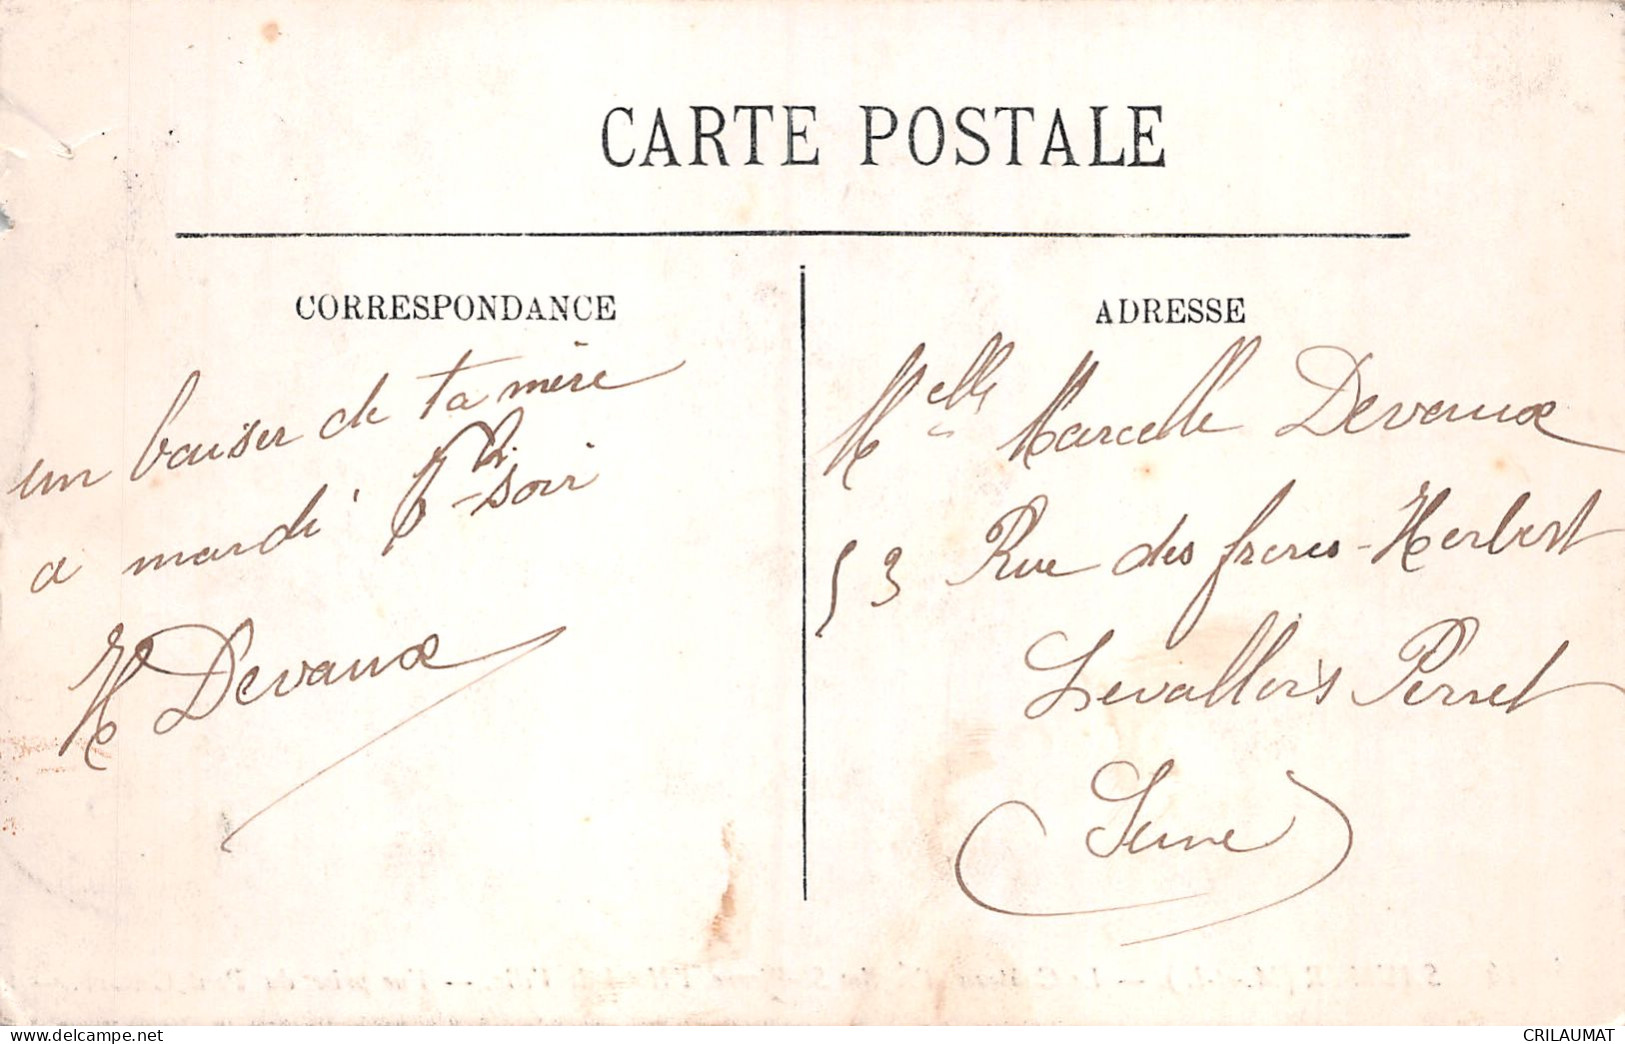 CARTE POSTALE
CORRESPONDANCE
un baiser de ta mère
a mardi soir
H Devaux
ADRESSE
Melle Marcelle Devaux
53 Rue des freres Herbert
Levallois Perret
Seine
CRILAUMAT